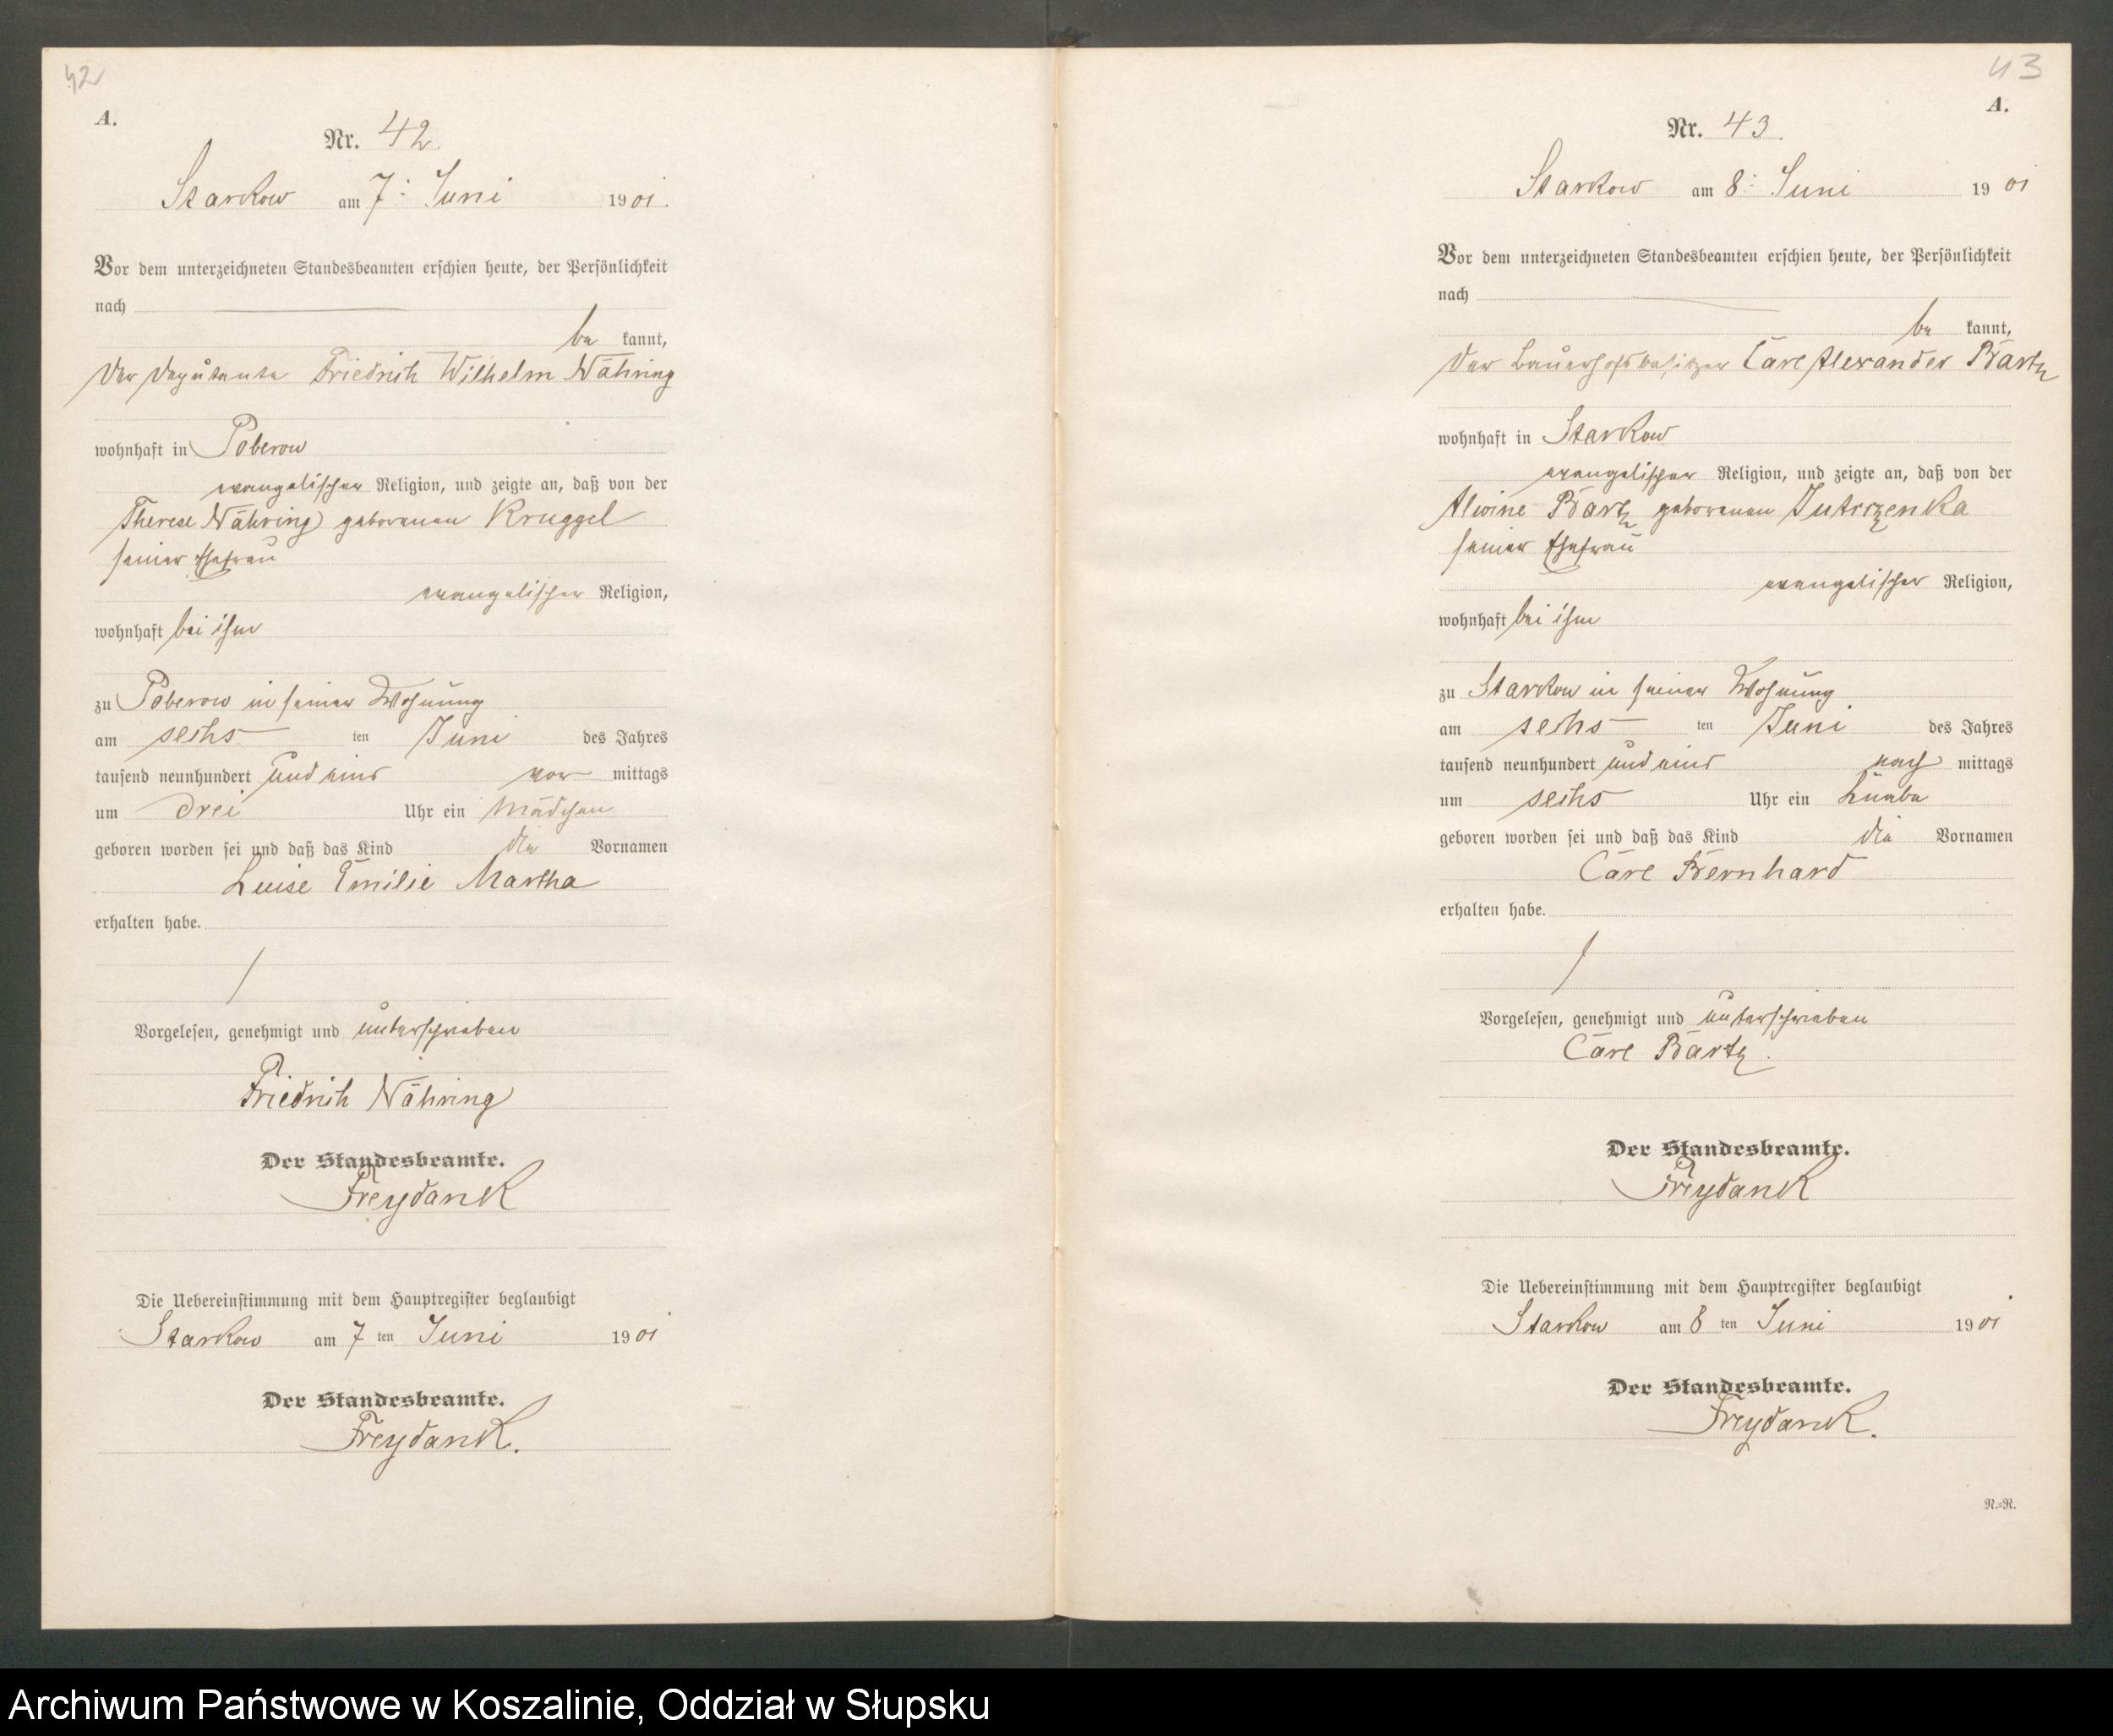 42
A.
Nr. 42.
Starkow am 7. Juni 1901.
Vor dem unterzeichneten Standesbeamten erschien heute, der Persönlichkeit
nach
be kannt,
der Deputante Friedrich Wilhelm Nähring
wohnhaft in Poberow
evangelischer Religion, und zeigte an, daß von der
Therese Nähring geborenen Kruggel
seiner Ehefrau
evangelischer Religion,
wohnhaft bei ihm
zu Poberow in seiner Wohnung
am sechs ten Juni des Jahres
tausend neunhundert und eins vor mittags
um drei Uhr ein Mädchen
geboren worden sei und daß das Kind die Vornamen
Luise Emilie Martha
erhalten habe.
Vorgelesen, genehmigt und unterschrieben
Friedrich Nähring
Der Standesbeamte.
Freydank
Die Uebereinstimmung mit dem Hauptregister beglaubigt
Starkow am 7 ten Juni 1901
Der Standesbeamte.
Freydank.
43
A.
Nr. 43.
Starkow am 8. Juni 1901
Vor dem unterzeichneten Standesbeamten erschien heute, der Persönlichkeit
nach
be kannt,
der Bauerhofsbesitzer Carl Alexander Bartz
wohnhaft in Starkow
evangelischer Religion, und zeigte an, daß von der
Alwine Bartz geborenen Jutrczenka
seiner Ehefrau
evangelischer Religion,
wohnhaft bei ihm
zu Starkow in seiner Wohnung
am sechs ten Juni des Jahres
tausend neunhundert und eins nach mittags
um sechs Uhr ein Knabe
geboren worden sei und daß das Kind die Vornamen
Carl Bernhard
erhalten habe.
Vorgelesen, genehmigt und unterschrieben
Carl Bartz.
Der Standesbeamte.
Freydank
Die Uebereinstimmung mit dem Hauptregister beglaubigt
Starkow am 8 ten Juni 1901
Der Standesbeamte.
Freydank.
N.=N.
Archiwum Państwowe w Koszalinie, Oddział w Słupsku